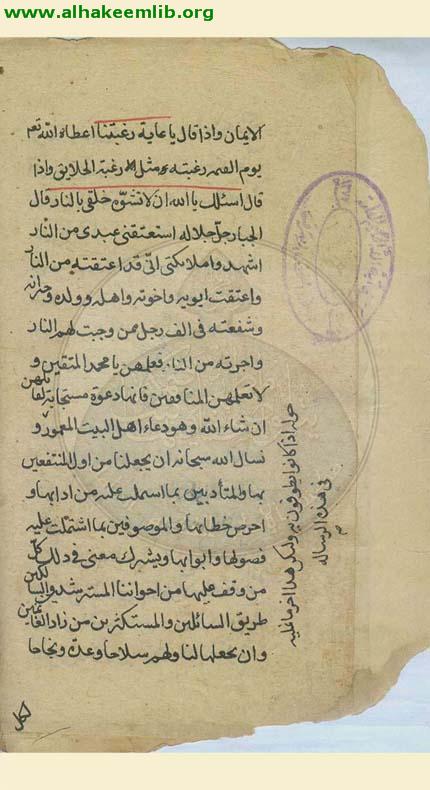 www.alhakeemlib.org
الايمان واذا قال يا غاية رغبتنا اعطاه الله تعم
يوم القيمة رغبته مثل رغبة الخلايق واذا
قال اسئلك يا الله ان لا تشوّه خلقى بالنار قال
الجبار جلّ جلاله استعتقنى عبدى من النار
اشهدوا ملائكتى انّى قد اعتقته من النار
واعتقت ابويه واخوته واهله وولده وجيرانه
وشفعته فى الف رجل ممن وجبت لهم النار
واجرته من النار فعلمهن يا محمد المتقين و
لا تعلمهن المنافقين فانها دعوة مستجابة لقائلهن
ان شاء الله وهو دعاء اهل البيت المعمور
نسال الله سبحانه ان يجعلنا من اول المنتفعين
بها والمتأدبين بما اشتملت عليه من ادابها و
احرص خطابها والموصوفين بما اشتملت عليه
فصولها وابوابها ويشرك معنى فى ذلك كل
من وقف عليها من اخواننا المسترشدين السالكين
طريق السائلين والمستكثرين من زاد الغانمين
وان يجعلها لنا ولهم سلاحا وعدة ونجاحا
حوله اذا كانوا يطوفون به وليكن هذا اخر ما نمليه
فى هذه الرسالة